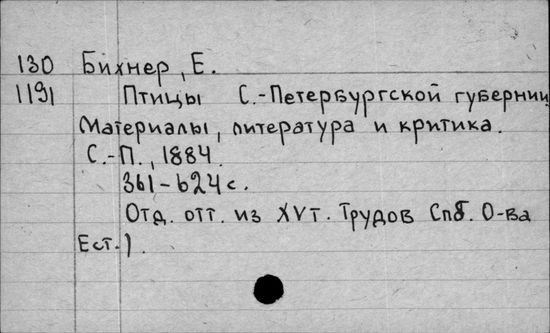 130 Бихнер, Е.
1191 Птицы С.-Петербургской губерниц
Материалы, литература и критика.
С.-П., 1884.
361-624 с.
Отд. отт. из XV т. Трудов Спб. О-ва
Ест.)